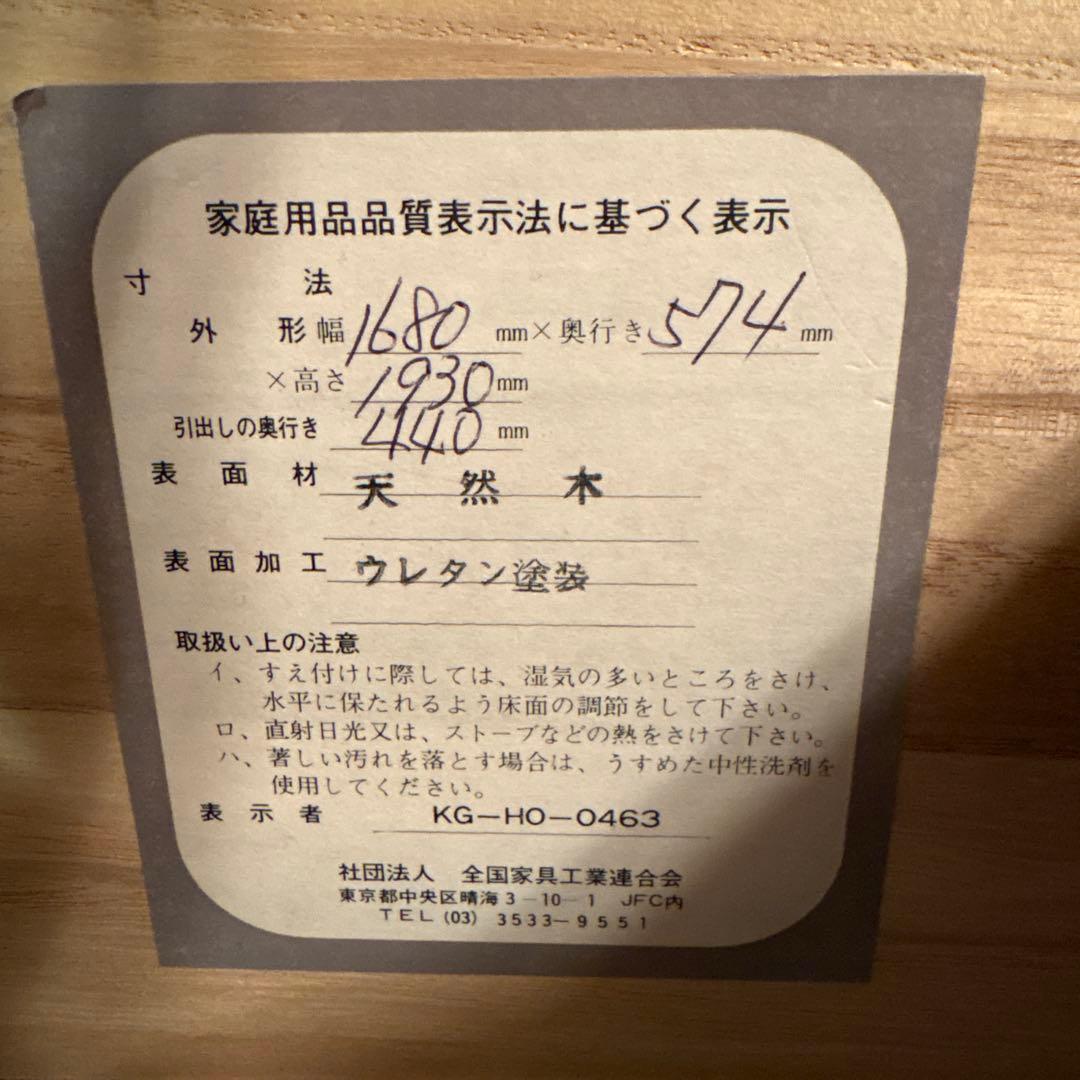 家庭用品品質表示法に基づく表示
寸法
外形 幅 1680 mm × 奥行き 574 mm
×高さ 1930 mm
引出しの奥行き 440 mm
表面材 天然木
表面加工 ウレタン塗装
取扱い上の注意
イ、すえ付けに際しては、湿気の多いところをさけ、
水平に保たれるよう床面の調節をして下さい。
ロ、直射日光又は、ストーブなどの熱をさけて下さい。
ハ、著しい汚れを落とす場合は、うすめた中性洗剤を
使用してください。
表示者 KG-HO-0463
社団法人 全国家具工業連合会
東京都中央区晴海3-10-1 JFC内
TEL (03) 3533-9551